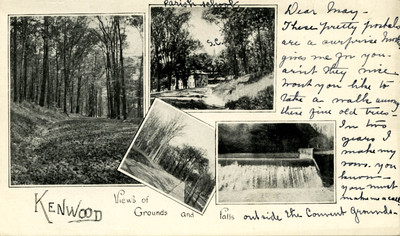 parish school
S.C.
Dear May –
These pretty postals
are a surprise
gives me for you –
arn't they nice
wont you like to
take a walk among
these fine old trees –
In two
years I
make my
vows. you
know –
you must
make me a call
KENWOOD
Views of
Grounds and
Falls outside the Convent Grounds –